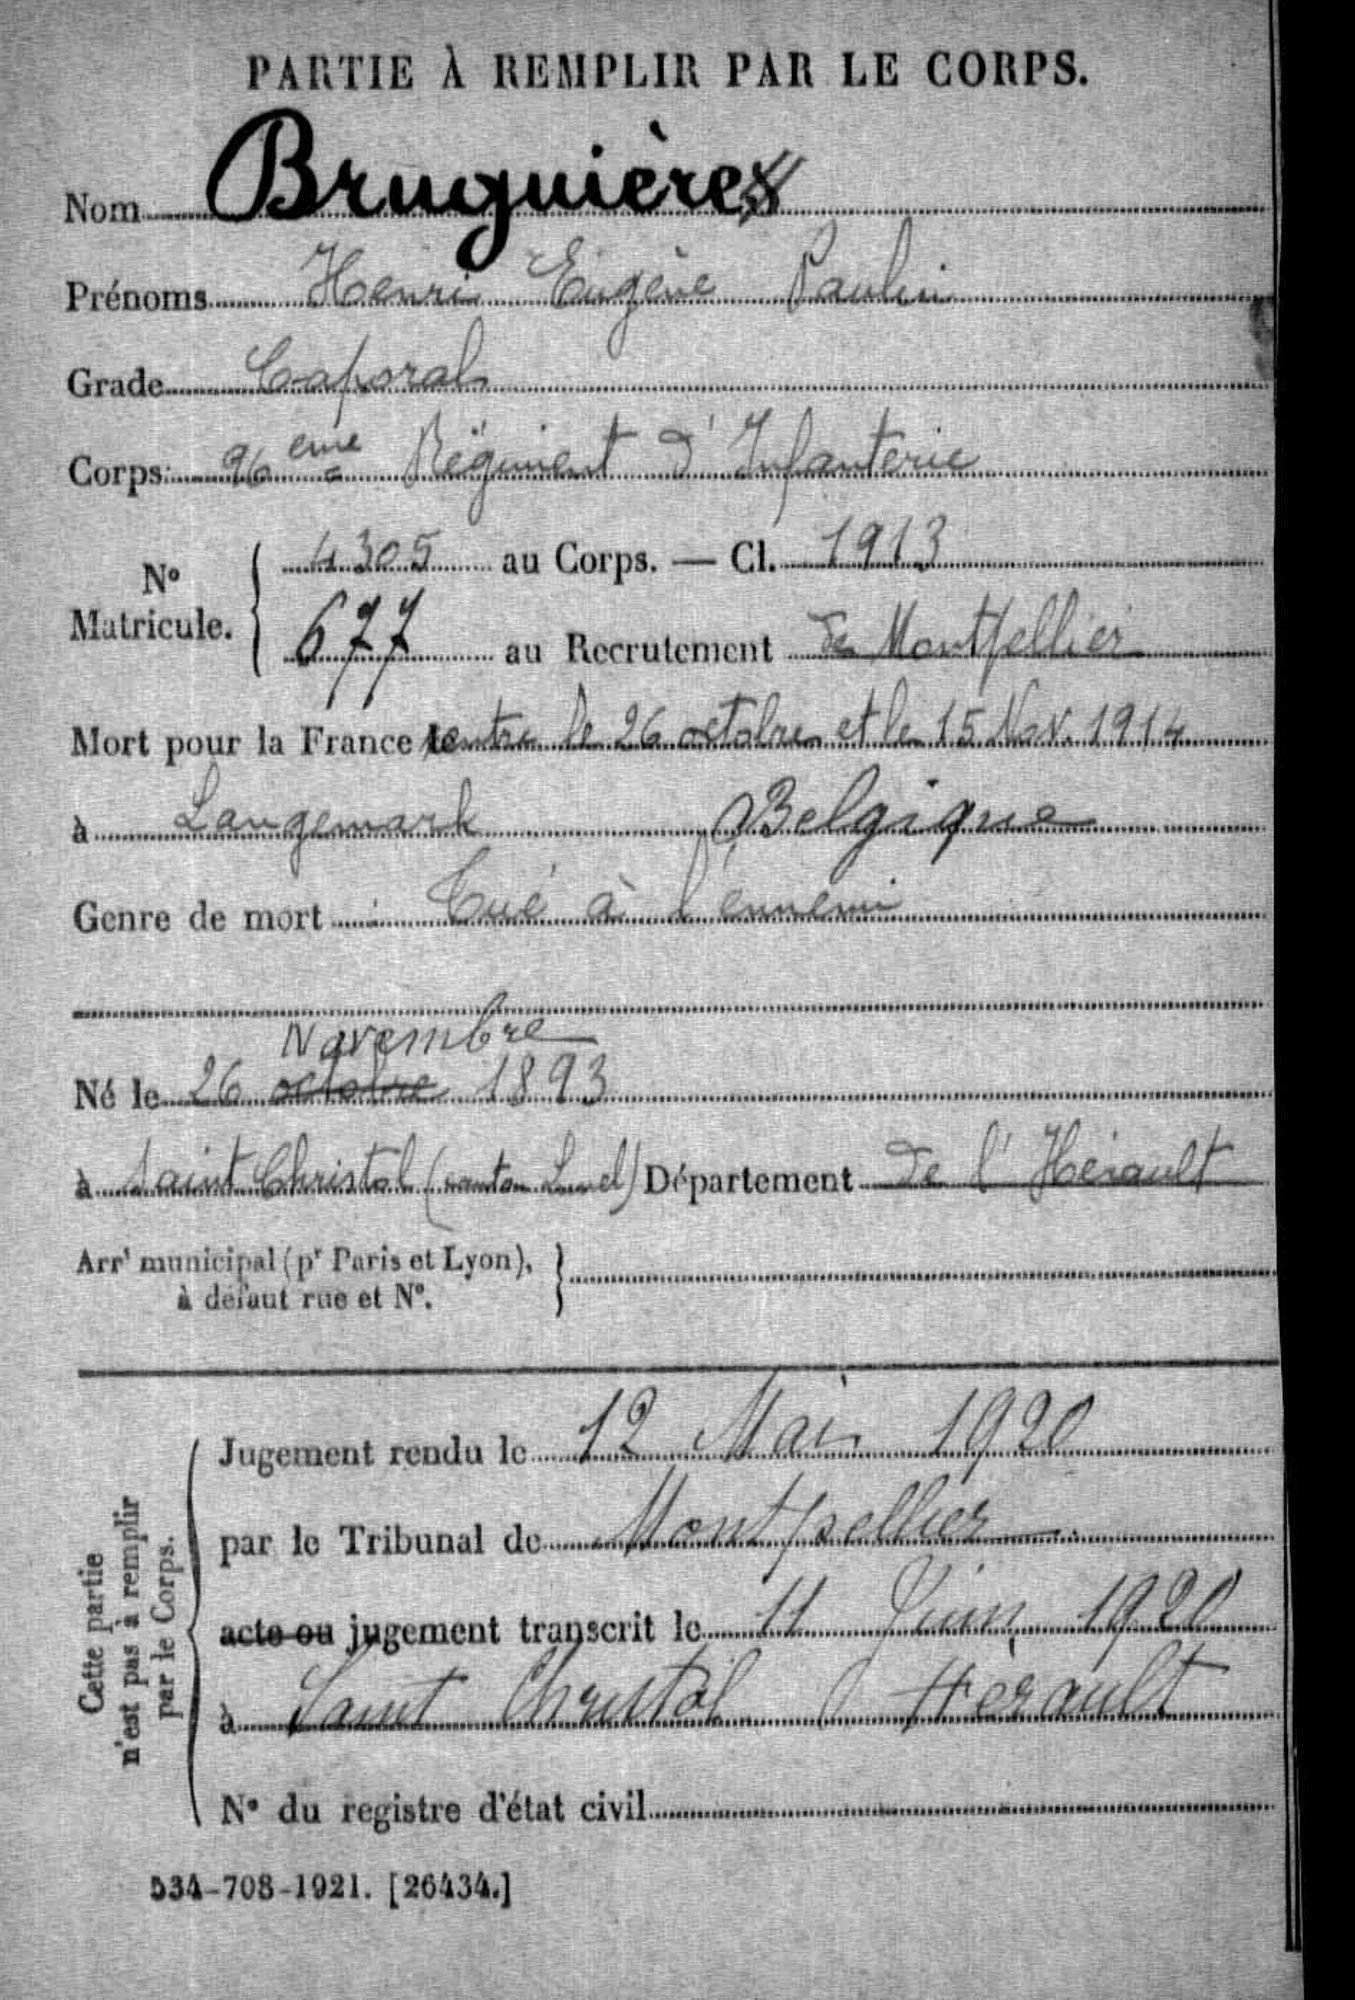 PARTIE À REMPLIR PAR LE CORPS.
Nom Bruguière
Prénoms Henri Eugène Paulin
Grade Caporal
Corps: 96 eme Régiment d'Infanterie
N° Matricule. { 4305 au Corps. — Cl. 1913
677 au Recrutement de Montpellier
Mort pour la France entre le 26 octobre et le 15 Nov. 1914
à Langemark Belgique
Genre de mort Tué à l'ennemi
Novembre
Né le 26 octobre 1893
à Saint Christol (canton Lunel) Département de l'Hérault
Arrt municipal (pr Paris et Lyon),
à défaut rue et N°.
Cette partie
n'est pas à remplir
par le Corps.
Jugement rendu le 12 Mai 1920
par le Tribunal de Montpellier
acte ou jugement transcrit le 11 Juin 1920
à Saint Christol Hérault
N° du registre d'état civil
534-708-1921. [26434.]